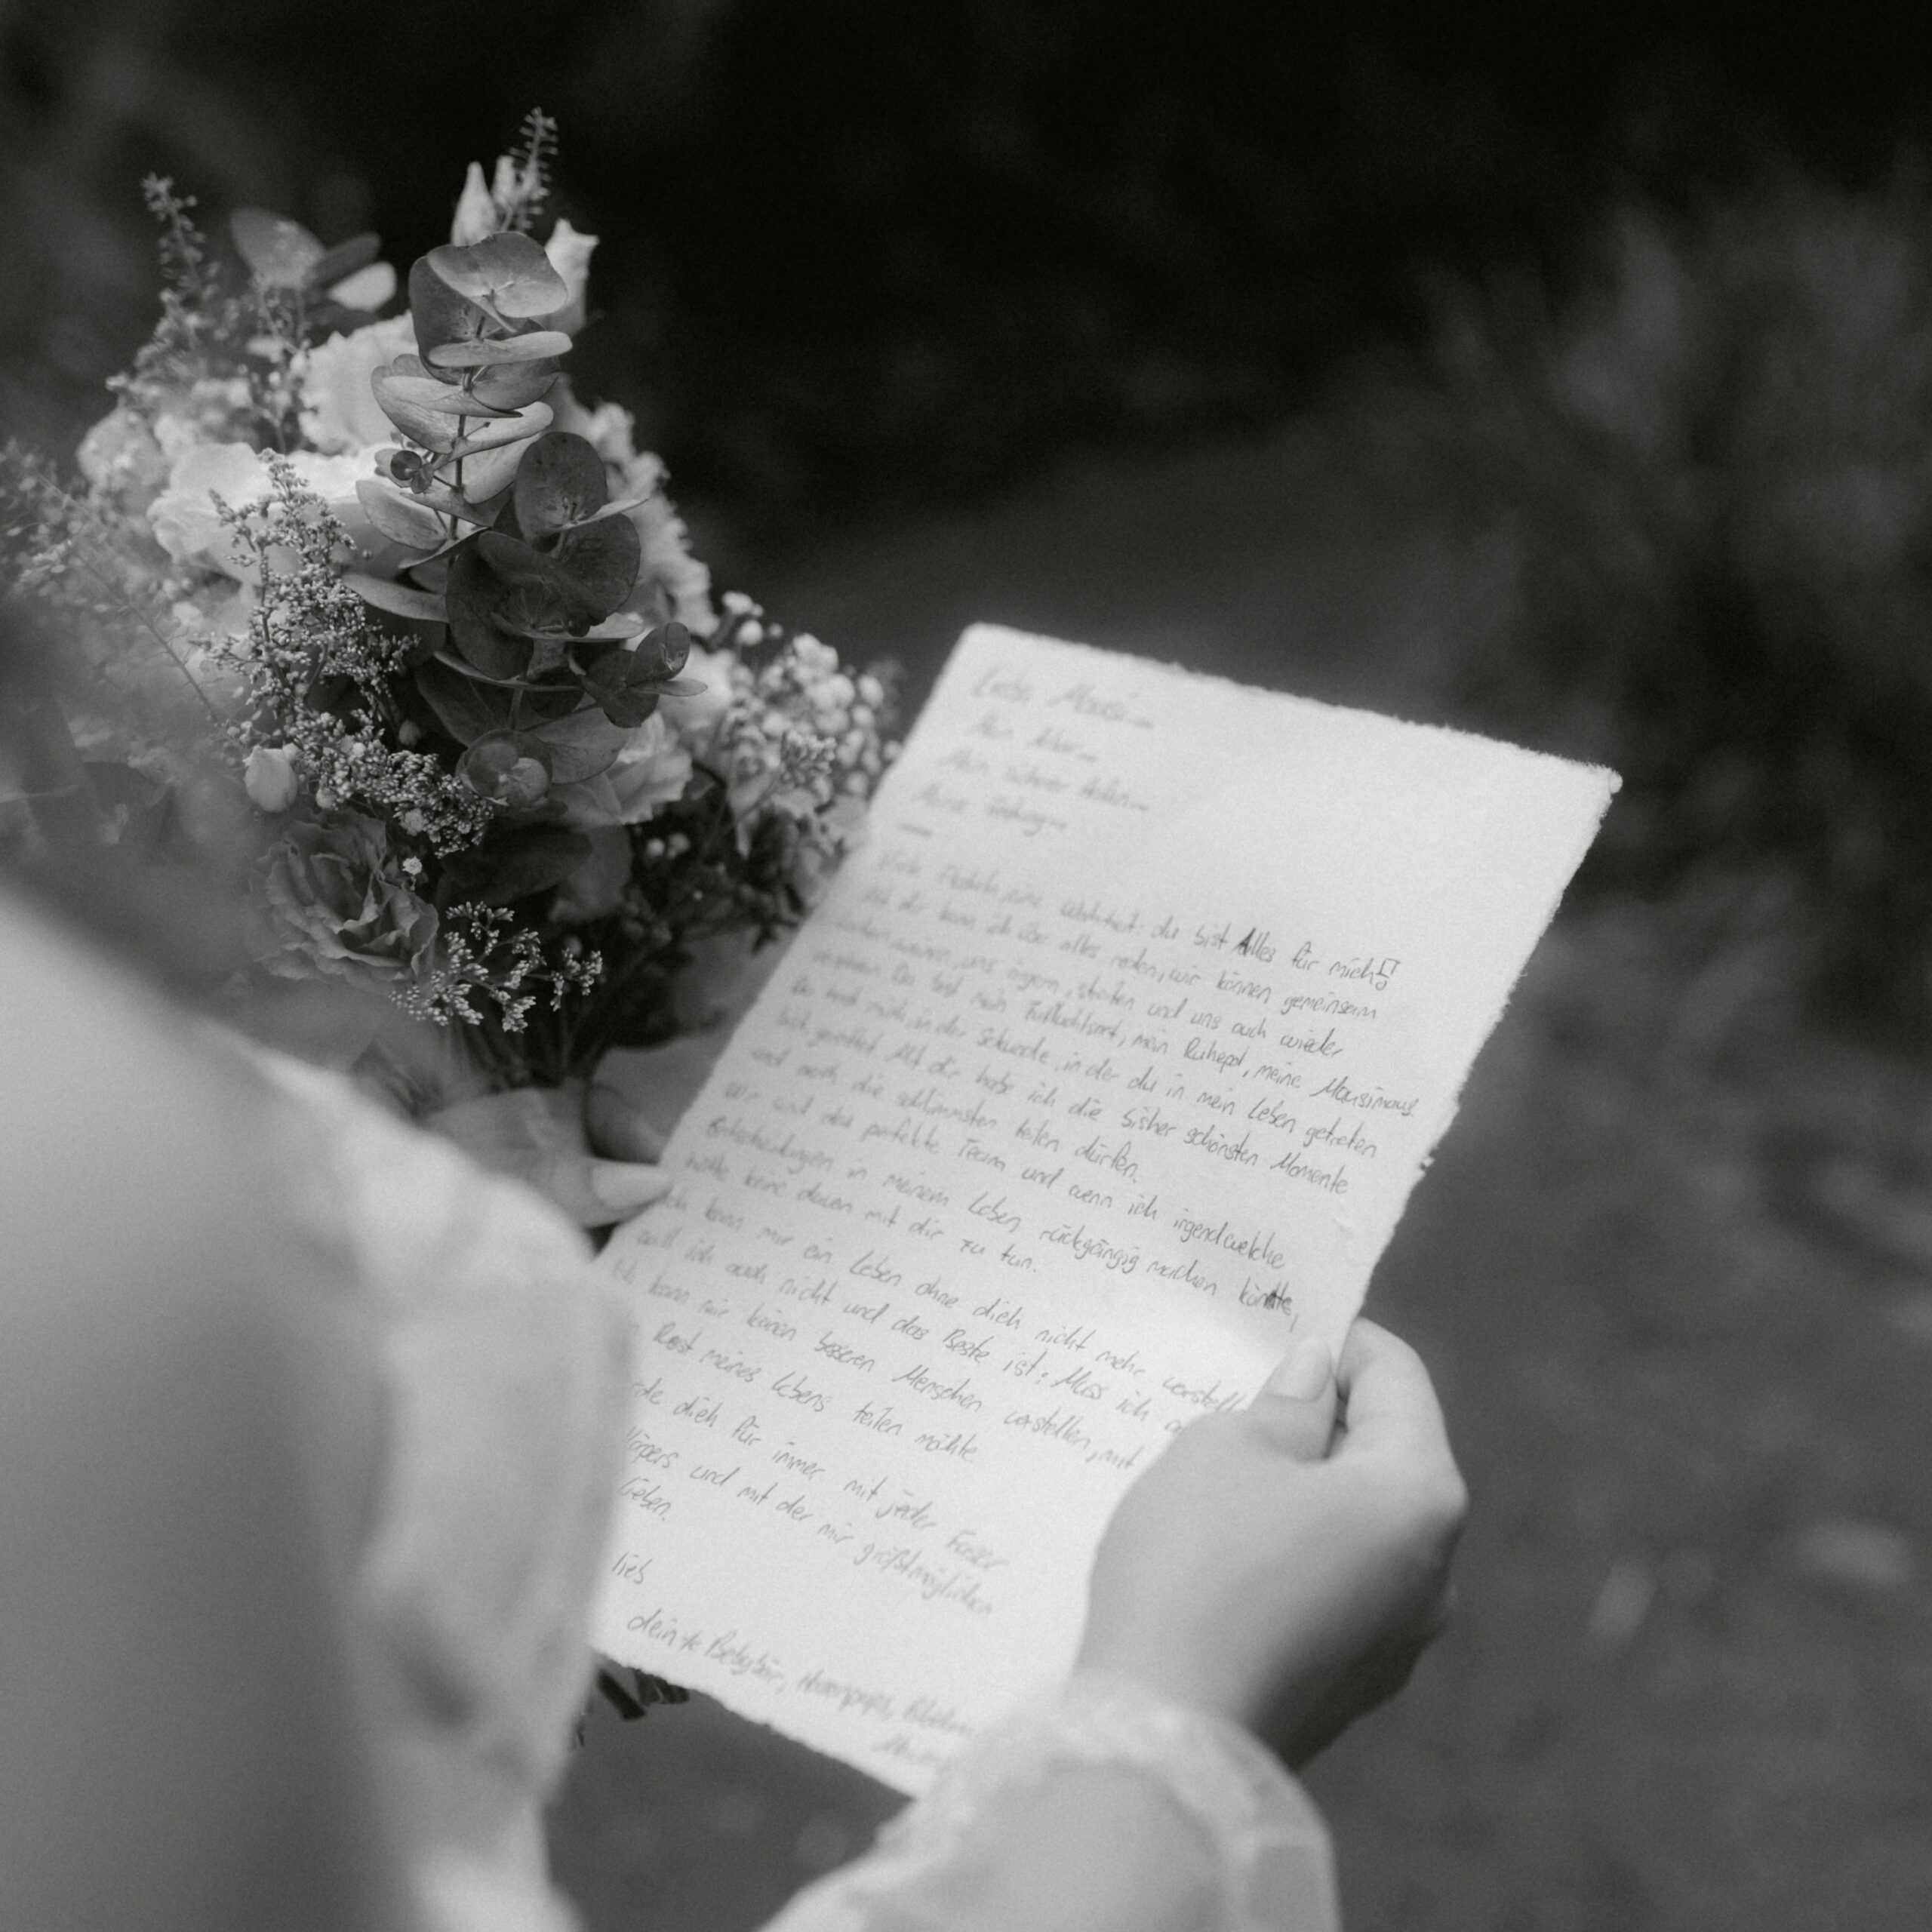 Liebe
Mein
Mein
Meine
eine Wahrheit: du bist Alles für mich
Mit dir kann ich über alles reden, wir können gemeinsam
uns ärgern, streiten und uns auch wieder
Du bist mein Zufluchtsort, mein Ruhepol, meine Mausimaus.
Du hast mich, in der Sekunde, in der du in mein Leben getreten
bist, gerettet. Mit dir habe ich die bisher schönsten Momente
und auch die schlimmsten teilen dürfen.
Wir sind das perfekte Team und wenn ich irgendwelche
Entscheidungen in meinem Leben rückgängig machen könnte,
hätte keine davon mit dir zu tun.
Ich kann mir ein Leben ohne dich nicht mehr vorstell
will ich auch nicht und das Beste ist: Muss ich a
Ich kann mir keinen besseren Menschen vorstellen, mit
n Rest meines Lebens teilen möchte.
rde dich für immer mit jeder Faser
Körpers und mit der mir größtmöglichen
lieben.
lieb
dein